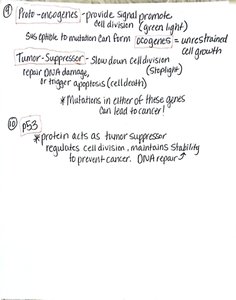 9) Proto-oncogenes - provide signal promote
cell division (green light)
Susptible to mutation can form ocogenes = unrestrained
cell growth
Tumor-Suppressor - Slow down cell division
repair DNA damage, (stoplight)
or trigger apoptosis (cell death)
*Mutations in either of these genes
can lead to cancer!
10) p53
*protein acts as tumor suppressor
regulates cell division, maintains stability
to prevent cancer. DNA repair